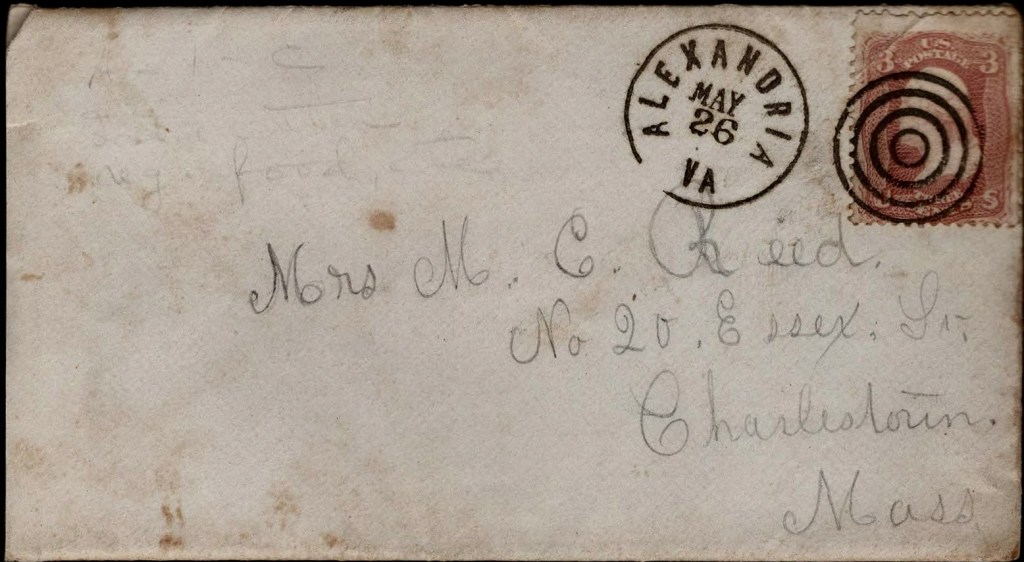 ALEXANDRIA
MAY
26
VA
3 U.S. 3
POSTAGE
Mrs M. C. Reed.
No 20. Essex. St.
Charlestown.
Mass
food,